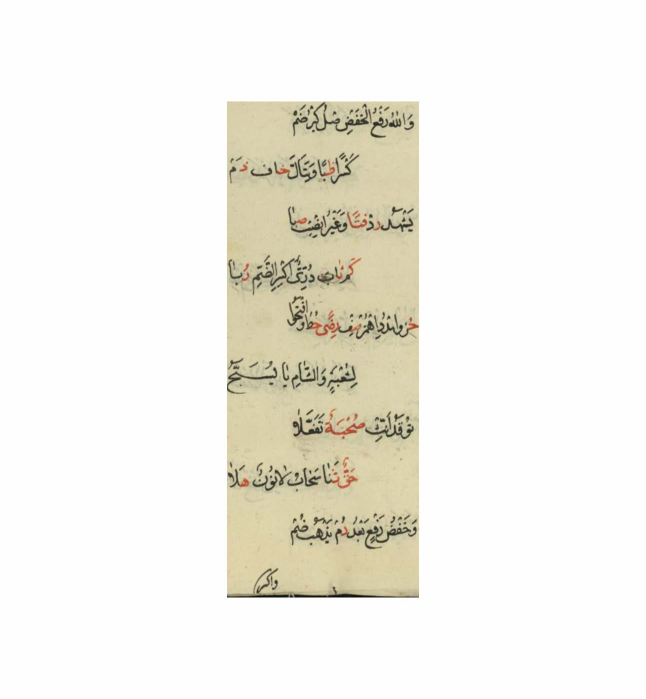 وَاللهُ رَفْعُ الْخَفْضِ صْلٌ كُبْرُ ضُمّْ
كَسْرًا ظُبًا وَيَتَاَلَّ خَافَ ذَمّْ
يَشْهَدُ رُدْ فَتًا وَغَيْرِ انْصِبْ صَبَا
كَمْ ثَابَ دُرِّئٌ اكْسِرِ الضَّمَّ رُبَا
حُزْ وَامْدُدِ اهْمِزْ صِفْ رِضًى حُطْ وَافْتَحُوا
لِشُعْبَةٍ وَالشَّامِ بَا يُسَبِّحُ
تُوقَدُ اَنِّثْ صُحْبَةٌ تَفَعَّلَا
حَقٌّ ثَنَا سَحَابُ لَا نُوْنٌ هَلَا
وَخَفْضُ رَفْعٍ بَعْدُ دُمْ يَذْهَبُ ضُمّْ
واكسر